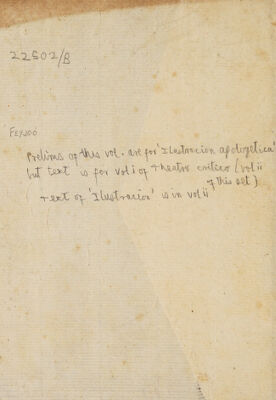 22502/B
FEYJOO
Prelims of this vol. are for 'Ilustracion apologetica'
but text is for vol i of Theatro critico (vol ii
of this set)
Text of 'Ilustracion' is in vol ii